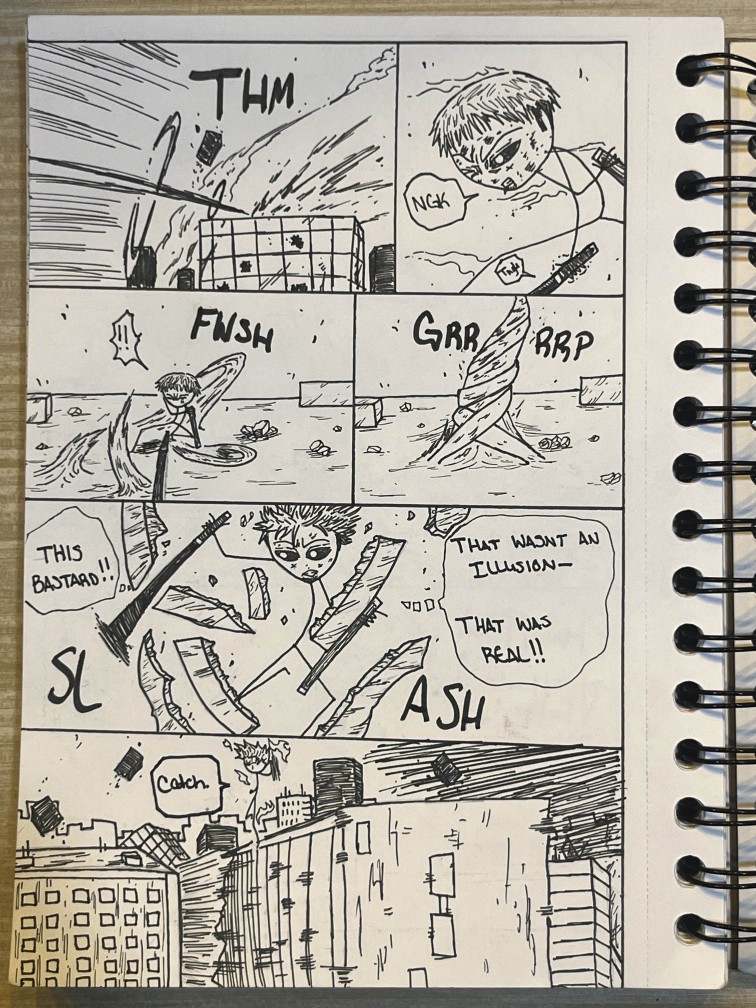 THM
NGK
!!!
FWSH
GRR RRP
THIS
BASTARD!!
THAT WASNT AN
ILLUSION—
THAT WAS
REAL!!
SL ASH
Catch.